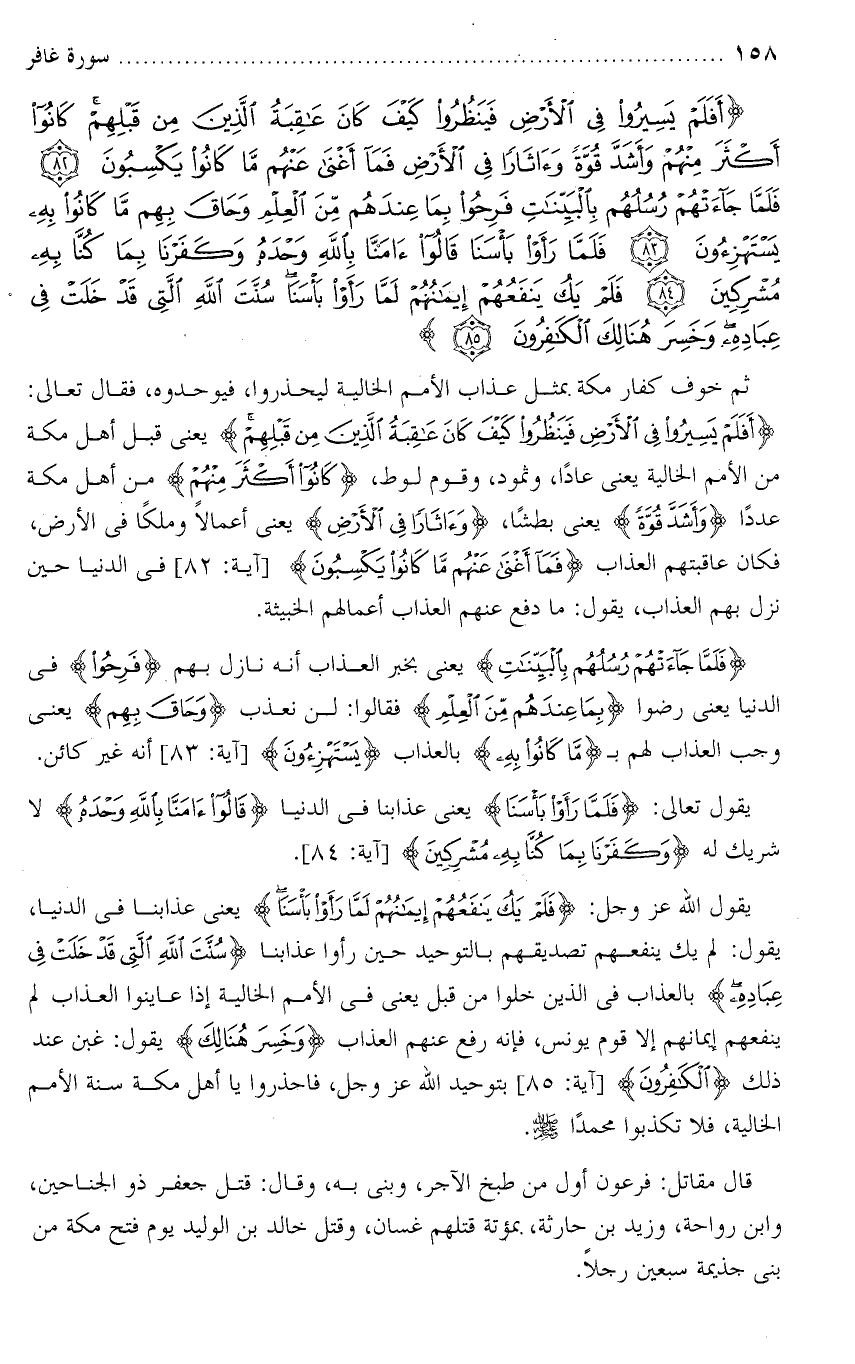 ١٥٨ ........................................................................ سورة غافر
﴿ أَفَلَمْ يَسِيرُوا۟ فِى ٱلْأَرْضِ فَيَنظُرُوا۟ كَيْفَ كَانَ عَٰقِبَةُ ٱلَّذِينَ مِن قَبْلِهِمْ ۚ كَانُوٓا۟
أَكْثَرَ مِنْهُمْ وَأَشَدَّ قُوَّةً وَءَاثَارًا فِى ٱلْأَرْضِ فَمَآ أَغْنَىٰ عَنْهُم مَّا كَانُوا۟ يَكْسِبُونَ ۝٨٢
فَلَمَّا جَآءَتْهُمْ رُسُلُهُم بِٱلْبَيِّنَٰتِ فَرِحُوا۟ بِمَا عِندَهُم مِّنَ ٱلْعِلْمِ وَحَاقَ بِهِم مَّا كَانُوا۟ بِهِۦ
يَسْتَهْزِءُونَ ۝٨٣ فَلَمَّا رَأَوْا۟ بَأْسَنَا قَالُوٓا۟ ءَامَنَّا بِٱللَّهِ وَحْدَهُۥ وَكَفَرْنَا بِمَا كُنَّا بِهِۦ
مُشْرِكِينَ ۝٨٤ فَلَمْ يَكُ يَنفَعُهُمْ إِيمَٰنُهُمْ لَمَّا رَأَوْا۟ بَأْسَنَا ۖ سُنَّتَ ٱللَّهِ ٱلَّتِى قَدْ خَلَتْ فِى
عِبَادِهِۦ ۖ وَخَسِرَ هُنَالِكَ ٱلْكَٰفِرُونَ ۝٨٥ ﴾
ثم خوف كفار مكة بمثل عذاب الأمم الخالية ليحذروا، فيوحدوه، فقال تعالى:
﴿ أَفَلَمْ يَسِيرُوا۟ فِى ٱلْأَرْضِ فَيَنظُرُوا۟ كَيْفَ كَانَ عَٰقِبَةُ ٱلَّذِينَ مِن قَبْلِهِمْ ۚ ﴾ يعنى قبل أهل مكة
من الأمم الخالية يعنى عادًا، وثمود، وقوم لوط، ﴿ كَانُوٓا۟ أَكْثَرَ مِنْهُمْ ﴾ من أهل مكة
عددًا ﴿ وَأَشَدَّ قُوَّةً ﴾ يعنى بطشًا، ﴿ وَءَاثَارًا فِى ٱلْأَرْضِ ﴾ يعنى أعمالاً وملكًا فى الأرض،
فكان عاقبتهم العذاب ﴿ فَمَآ أَغْنَىٰ عَنْهُم مَّا كَانُوا۟ يَكْسِبُونَ ﴾ [آية: ٨٢] فى الدنيا حين
نزل بهم العذاب، يقول: ما دفع عنهم العذاب أعمالهم الخبيثة.
﴿ فَلَمَّا جَآءَتْهُمْ رُسُلُهُم بِٱلْبَيِّنَٰتِ ﴾ يعنى بخبر العذاب أنه نازل بهم ﴿ فَرِحُوا۟ ﴾ فى
الدنيا يعنى رضوا ﴿ بِمَا عِندَهُم مِّنَ ٱلْعِلْمِ ﴾ فقالوا: لن نعذب ﴿ وَحَاقَ بِهِم ﴾ يعنى
وجب العذاب لهم بـ ﴿ مَّا كَانُوا۟ بِهِۦ ﴾ بالعذاب ﴿ يَسْتَهْزِءُونَ ﴾ [آية: ٨٣] أنه غير كائن.
يقول تعالى: ﴿ فَلَمَّا رَأَوْا۟ بَأْسَنَا ﴾ يعنى عذابنا فى الدنيا ﴿ قَالُوٓا۟ ءَامَنَّا بِٱللَّهِ وَحْدَهُۥ ﴾ لا
شريك له ﴿ وَكَفَرْنَا بِمَا كُنَّا بِهِۦ مُشْرِكِينَ ﴾ [آية: ٨٤].
يقول الله عز وجل: ﴿ فَلَمْ يَكُ يَنفَعُهُمْ إِيمَٰنُهُمْ لَمَّا رَأَوْا۟ بَأْسَنَا ۖ ﴾ يعنى عذابنا فى الدنيا،
يقول: لم يك ينفعهم تصديقهم بالتوحيد حين رأوا عذابنا ﴿ سُنَّتَ ٱللَّهِ ٱلَّتِى قَدْ خَلَتْ فِى
عِبَادِهِۦ ۖ ﴾ بالعذاب فى الذين خلوا من قبل يعنى فى الأمم الخالية إذا عاينوا العذاب لم
ينفعهم إيمانهم إلا قوم يونس، فإنه رفع عنهم العذاب ﴿ وَخَسِرَ هُنَالِكَ ﴾ يقول: غبن عند
ذلك ﴿ ٱلْكَٰفِرُونَ ﴾ [آية: ٨٥] بتوحيد الله عز وجل، فاحذروا يا أهل مكة سنة الأمم
الخالية، فلا تكذبوا محمدًا ﷺ.
قال مقاتل: فرعون أول من طبخ الآجر، وبنى به، وقال: قتل جعفر ذو الجناحين،
وابن رواحة، وزيد بن حارثة، بمؤتة قتلهم غسان، وقتل خالد بن الوليد يوم فتح مكة من
بنى جذيمة سبعين رجلاً.